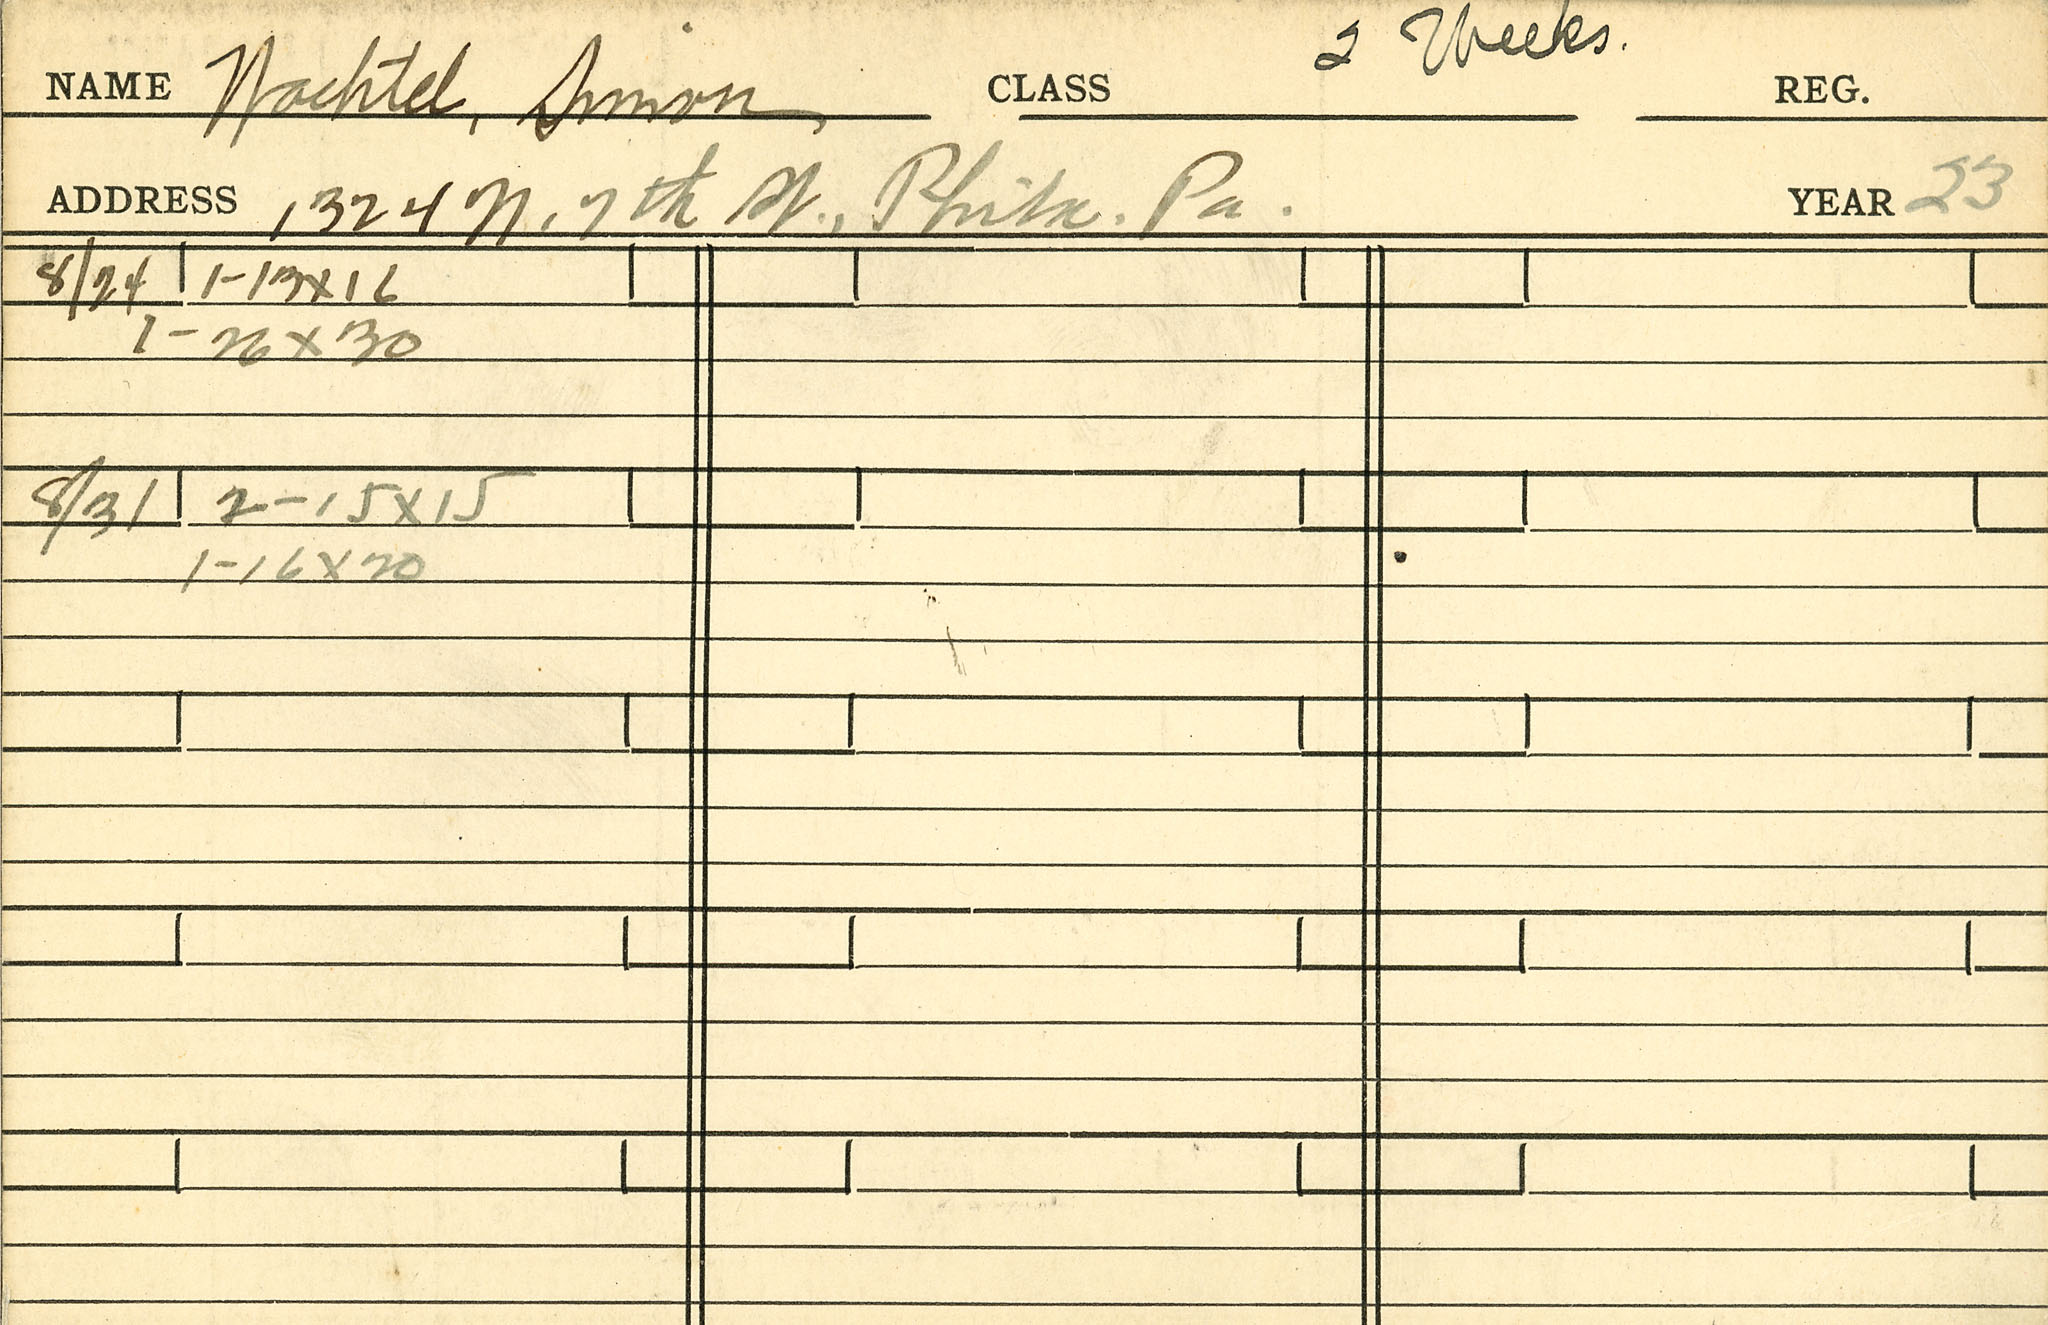 2 Weeks.
NAME Wachtel, Simon CLASS REG.
ADDRESS 1324 N. 7th St., Phila. Pa. YEAR 23
8/24 1-13x16
1-26x30
8/31 2-15x15
1-16x20